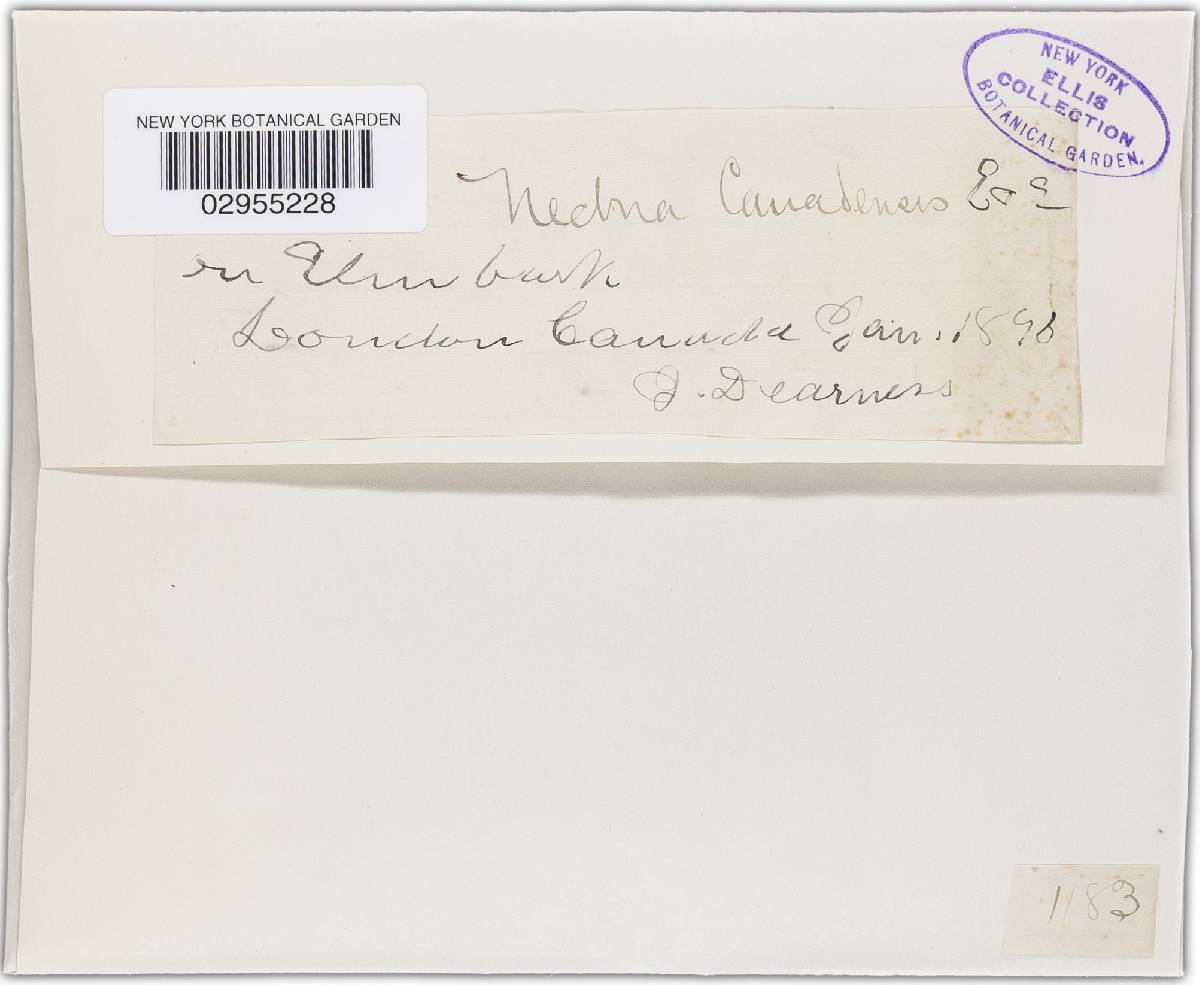 NEW YORK
ELLIS
COLLECTION
BOTANICAL GARDEN.
NEW YORK BOTANICAL GARDEN
02955228
Nectria Canadensis E & E
on Elm bark
London Canada Jan. 1890
J. Dearness
1183